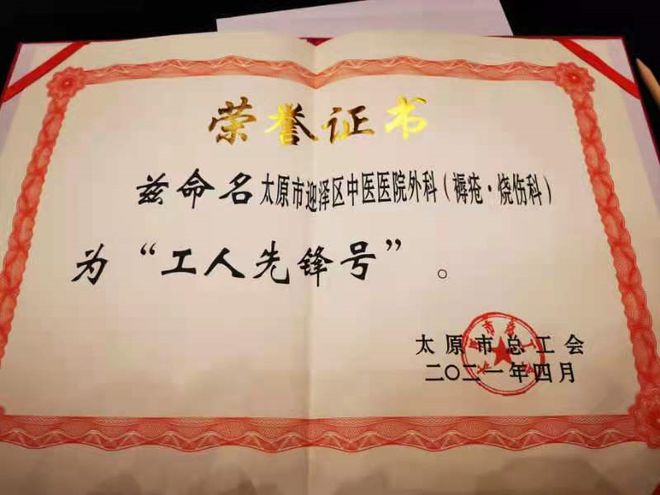 荣誉证书
兹命名太原市迎泽区中医医院外科（褥疮·烧伤科）
为“工人先锋号”。
太原市总工会
二〇二一年四月